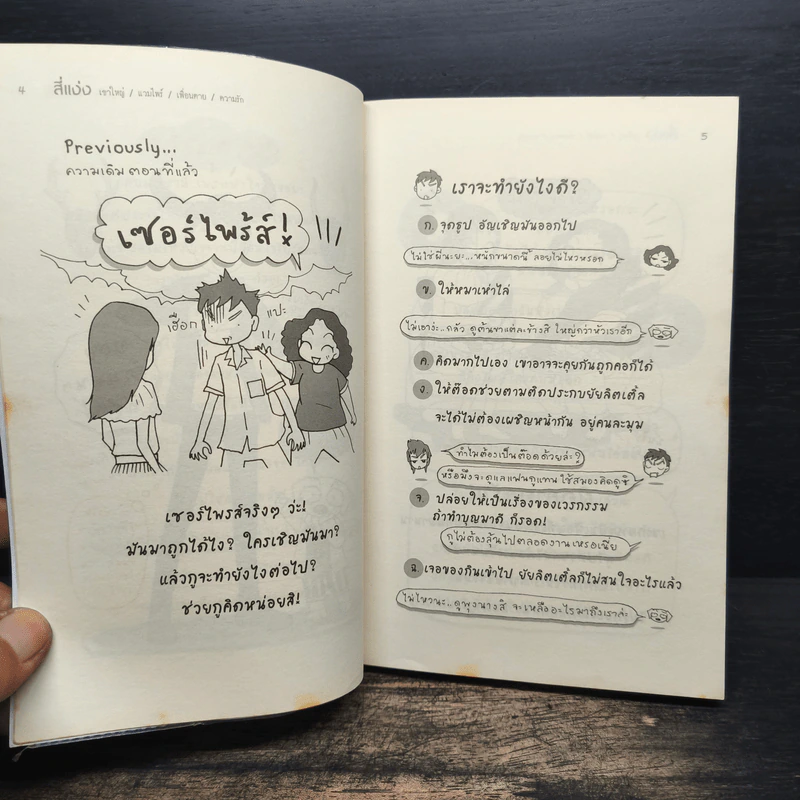 4 สี่แง่ง เขาใหญ่ / แวมไพร์ / เพื่อนตาย / ความรัก
Previously...
ความเดิม ตอนที่แล้ว
เซอร์ไพร้ส์!
เฮือก
แปะ
เซอร์ไพรส์จริงๆ ว่ะ!
มันมาถูกได้ไง? ใครเชิญมันมา?
แล้วกูจะทำยังไงต่อไป?
ช่วยกูคิดหน่อยสิ!
5
เราจะทำยังไงดี?
ก. จุดธูป อัญเชิญมันออกไป
ไม่ใช่ผีนะยะ...หนักขนาดนี้ ลอยไม่ไหวหรอก
ข. ให้หมาเห่าไล่
ไม่เอาง่ะ..กลัว ดูต้นขาแต่ละข้างสิ ใหญ่กว่าหัวเราอีก
ค. คิดมากไปเอง เขาอาจจะคุยกันถูกคอก็ได้
ง. ให้ต๊อดช่วยตามติดประกบยัยลิตเติ้ล
จะได้ไม่ต้องเผชิญหน้ากัน อยู่คนละมุม
ทำไมต้องเป็นต๊อดด้วยล่ะ?
หรือมึงจะดูแลแฟนกูแทน ใช้สมองคิดดูซิ
จ. ปล่อยให้เป็นเรื่องของเวรกรรม
ถ้าทำบุญมาดี ก็รอด!
กูไม่ต้องลุ้นไปตลอดงานเหรอเนี่ย
ฉ. เจอของกินเข้าไป ยัยลิตเติ้ลก็ไม่สนใจอะไรแล้ว
ไม่ไหวนะ..ดูพุงนางสิ จะเหลืออะไรมาถึงเราล่ะ